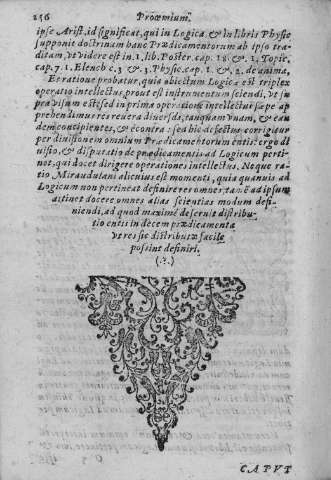 256 Proœmium.
ipse Arist. id significat, qui in Logica & in libris Physic
supponit doctrinam hanc Prædicamentorum ab ipso tra-
ditam, vt videre est in. 1. lib. Poster. cap. 18. & 1. Topic.
cap. 7. 1. Elench c. 3. & 3. Physic. cap. 1. & 2. de anima,
Et ratione probatur, quia obiectum Logicæ est triplex
operatio intellectus, prout est instrumentum sciendi, vt su
pra visum est sed in prima operatione intellectus sæpe ap
prehendimus res reuera diuersas, tanquam vnam, & ean
dem concipientes, & econtra: sed hic defectus corrigitur
per diuisionem omnium Prædicamentorum entis: ergo di
uisio, & disputatio de prædicamentis ad Logicum perti-
net, qui docet dirigere operationes intellectus. Neque ra-
tio Mirandulani alicuius est momenti, quia quamuis ad
Logicum non pertineat definire res omnes: tamē ad ipsum
attinet docere omnes alias scientias modum defi-
niendi, ad quod maximè deseruit distribu-
tio entis in decem prædicamenta
vt res sic distributæ facile
possint definiri.
(.?.)
CAPVT